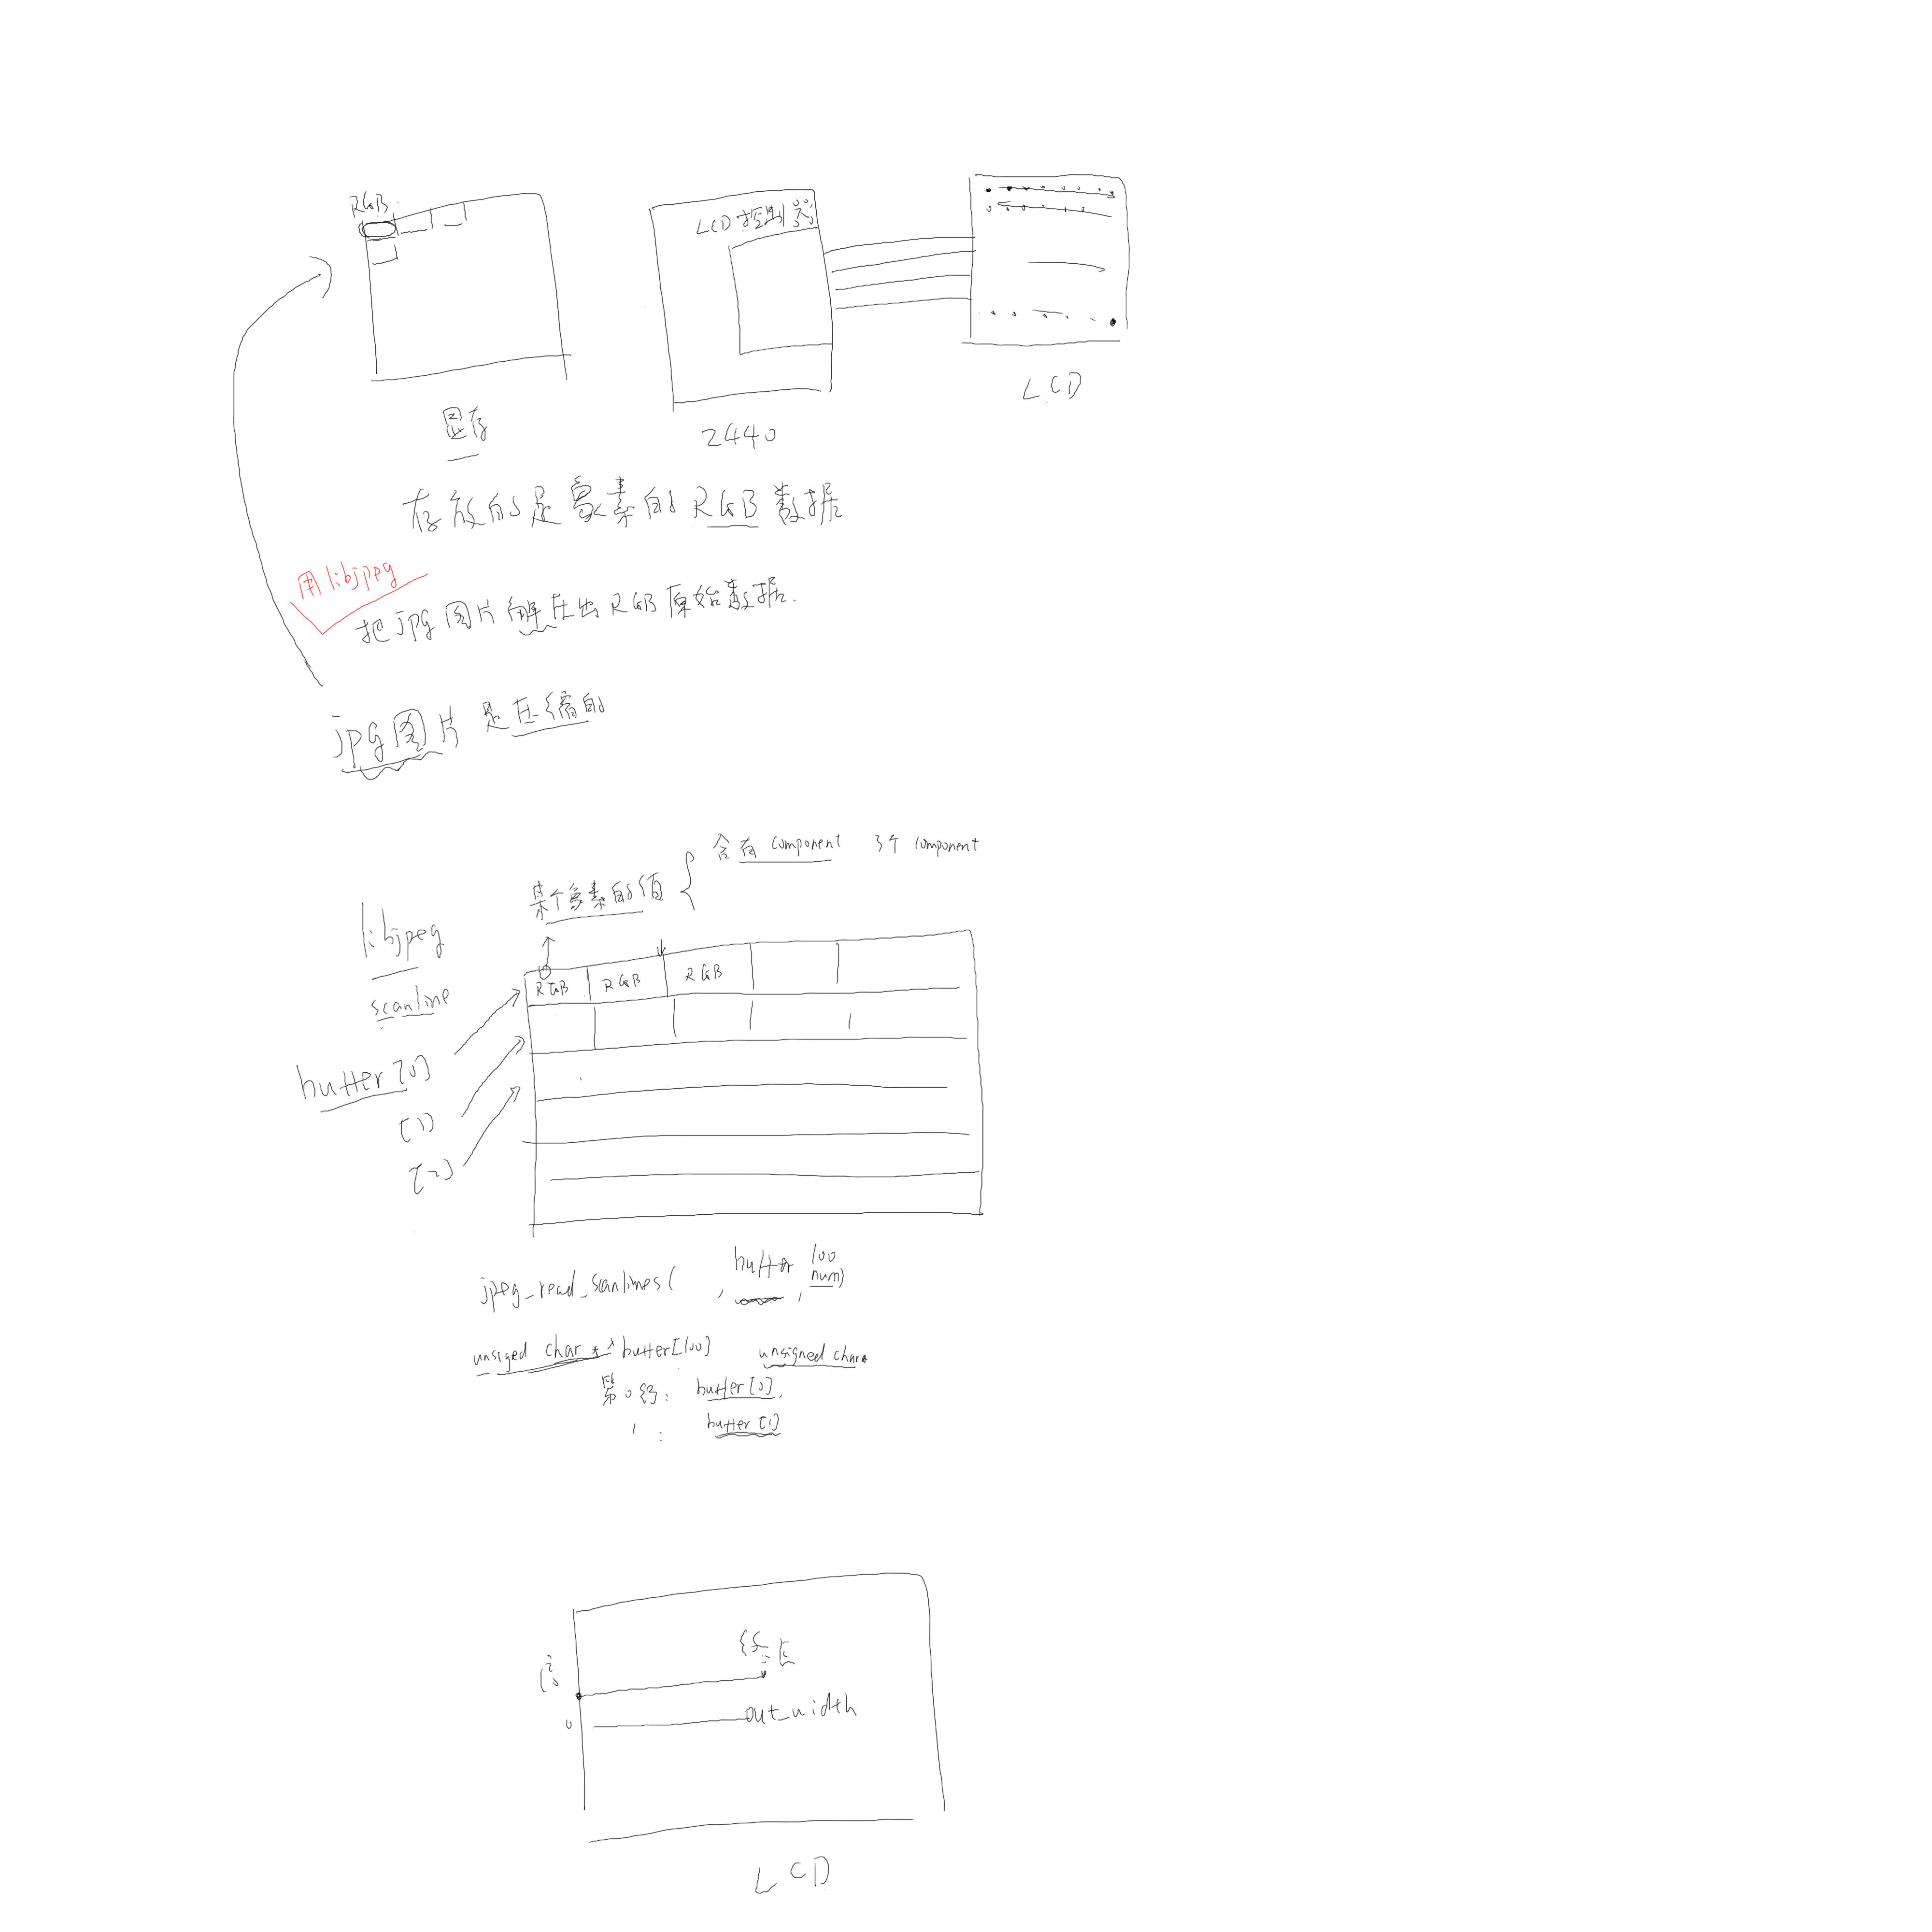 RGB
LCD控制器
显存
2440
LCD
存放的是象素的RGB数据
用libjpeg
把jpg图片解压出RGB原始数据.
jpg图片是压缩的
含有 component 3个 component
某个象素的值
libjpeg
scanline
RGB RGB RGB
buffer[0]
[1]
[2]
jpeg_read_scanlines( , buffer, 100
num)
unsiged char * buffer[100] unsigned char*
第0行: buffer[0],
1 : buffer[1]
0
out_width
LCD